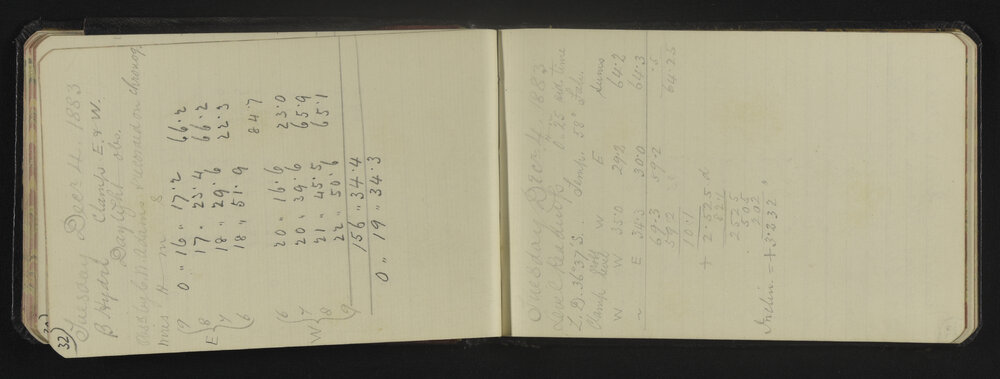 32
Tuesday Decr 4. 1883
β Hydri Clamps E. & W.
Daylight obs.
Obsd by C. W. Adams & recorded on chronog.
Wires H m s
E { 9 0 " 16 " 17.2 66.2
8 17 " 23.4 66.2
7 18 " 29.6 22.3
6 18 " 51.9
84.7
W { 6 20 " 16.6 23.0
7 20 " 39.6 65.9
8 21 " 45.5 65.1
9 22 " 50.6
156 " 34.4
0 " 19 " 34.3
Tuesday Decr 4. 1883
Level Readings 0.25 sid. time
Z.D. 36° 37' S. Temp. 58° Fahr.
Clamp Posn level W E Sums
W W 35.0 29.2 64.2
~ E 34.3 30.0 64.3
69.3 59.2 .5
59.2 64.25
10.1
+ 2.525 d
2525
505
202
Inclin = + 3.232 "